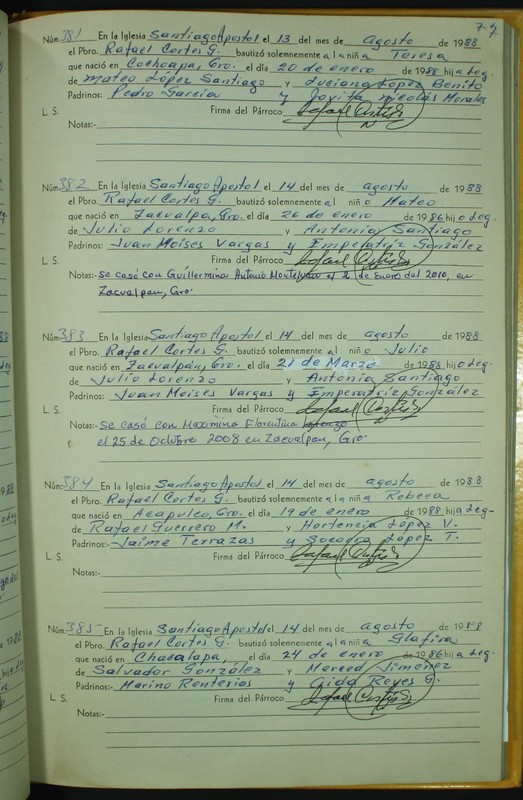 77
Núm. 381 En la Iglesia Santiago Apostol el 13 del mes de agosto de 1988
el Pbro. Rafael Cortes G. bautizó solemnemente a la niña Teresa
que nació en Cochoapa, Gro. el día 20 de enero de 1988 hija Leg.
de Mateo López Santiago y Luciana López Benito
Padrinos: Pedro García y Jovita Nicolás Morales
L. S. Firma del Párroco Rafael Cortés G.
Notas:-
Núm. 382 En la Iglesia Santiago Apostol el 14 del mes de agosto de 1988
el Pbro. Rafael Cortes G. bautizó solemnemente al niño Mateo
que nació en Zacualpa, Gro. el día 26 de enero de 1986 hijo Leg.
de Julio Lorenzo y Antonia Santiago
Padrinos: Juan Moises Vargas y Emperatriz González
L. S. Firma del Párroco Rafael Cortés G.
Notas:- Se casó con Guillermina Antonio el 2 de Enero del 2010, en
Zacualpan, Gro.
Núm. 383 En la Iglesia Santiago Apostol el 14 del mes de agosto de 1988
el Pbro. Rafael Cortes G. bautizó solemnemente al niño Julio
que nació en Zacualpan, Gro. el día 21 de Marzo de 1988 hijo Leg.
de Julio Lorenzo y Antonia Santiago
Padrinos: Juan Moises Vargas y Emperatriz González
L. S. Firma del Párroco Rafael Cortés G.
Notas:- Se casó con Maximina Florentino Lorenzo
el 25 de Octubre 2008 en Zacualpan, Gro.
Núm. 384 En la Iglesia Santiago Apostol el 14 del mes de agosto de 1988
el Pbro. Rafael Cortes G. bautizó solemnemente a la niña Rebeca
que nació en Acapulco, Gro. el día 19 de enero de 1988 hija Leg-
de Rafael Guerrero M. y Hortencia López V.
Padrinos:- Jaime Terrazas y Socorro López T.
L. S. Firma del Párroco Rafael Cortés G.
Notas:-
Núm. 385- En la Iglesia Santiago Apostol el 14 del mes de agosto de 1988
el Pbro. Rafael Cortes G. bautizó solemnemente a la niña Glafira
que nació en Chacalapa, el día 24 de enero de 1986 hija Leg.
de Salvador González y Merced Jiménez
Padrinos:- Marino Renterias y Aida Reyes G.
L. S. Firma del Párroco Rafael Cortés G.
Notas:-